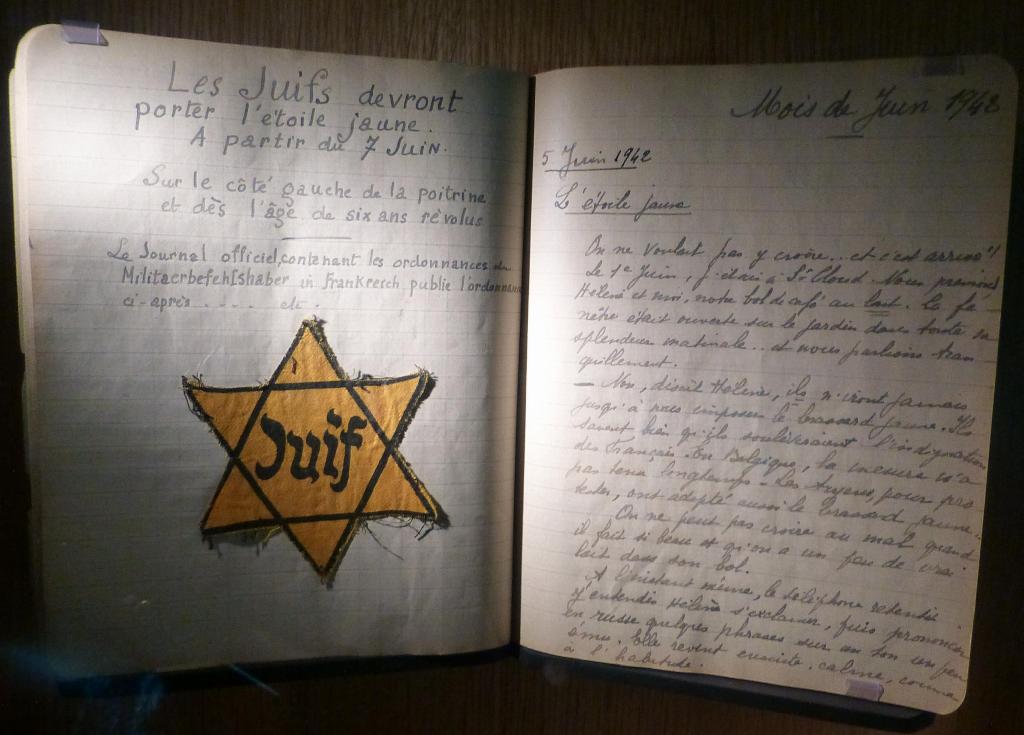 Les Juifs devront
porter l'étoile jaune.
A partir du 7 Juin.
Sur le côté gauche de la poitrine
et dès l'âge de six ans révolus
Le Journal officiel, contenant les ordonnances du
Militaerbefehlshaber in Frankreech publie l'ordonnance
ci-après ..... etc.
Juif
Mois de Juin 1942
5 Juin 1942
L'étoile jaune
On ne voulait pas y croire... et c'est arrivé!
Le 1er Juin, j'étais à St Cloud. Nous prenions
Hélène et moi, notre bol de café au lait. La fe
nêtre était ouverte sur le jardin dans toute sa
splendeur matinale... et nous parlions tran
quillement.
— Non, disait Hélène, ils n'iront jamais
jusqu'à nous imposer le brassard jaune. Ils
savent bien qu'ils soulèveraient l'indignation
des Français. En Belgique, la mesure n'a
pas tenu longtemps - Les Aryens, pour pro
tester, ont adopté aussi le brassard jaune.
On ne peut pas croire au mal quand
il fait si beau et qu'on a un peu de vrai
lait dans son bol.
A l'instant même, le téléphone retentit.
J'entendis Hélène s'exclamer, puis prononcer
en russe quelques phrases sur un ton un peu
ému. Elle revint ensuite, calme, comme
à l'habitude.